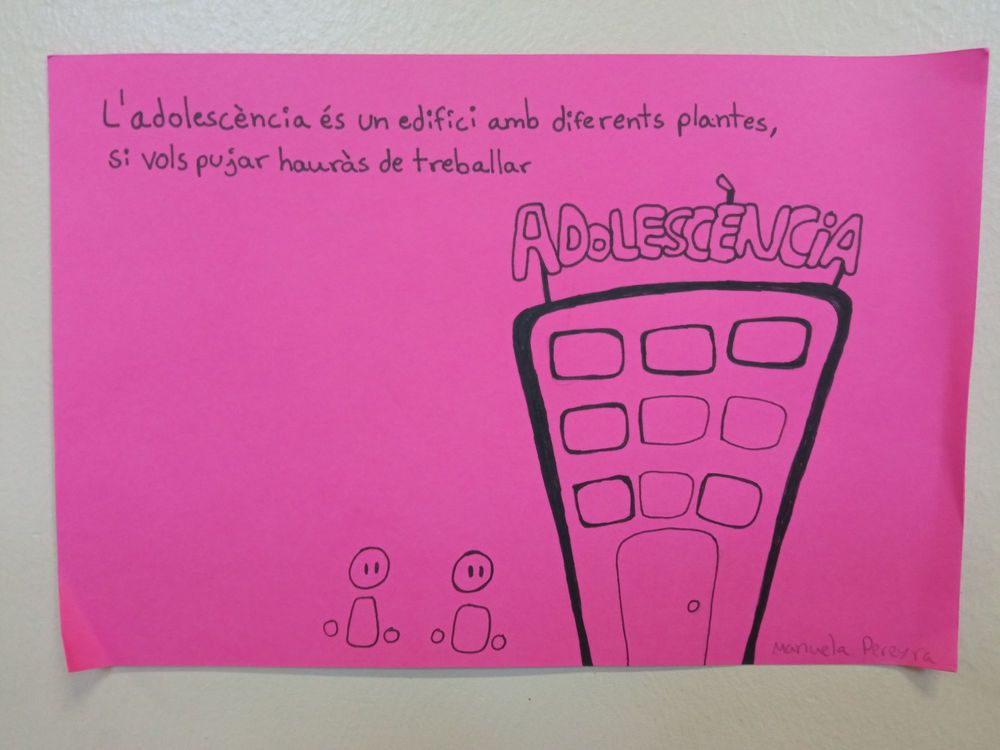 L'adolescència és un edifici amb diferents plantes,
si vols pujar hauràs de treballar
ADOLESCÈNCiA
Manuela Pereyra